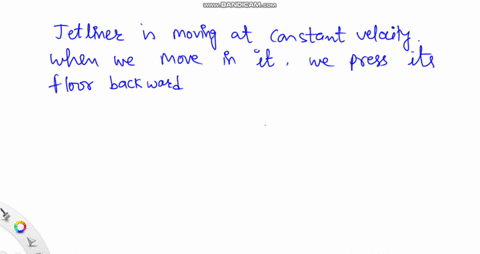 www.BANDICAM.com
Jetliner is moving at constant velocity.
when we move in it. we press its
floor backward